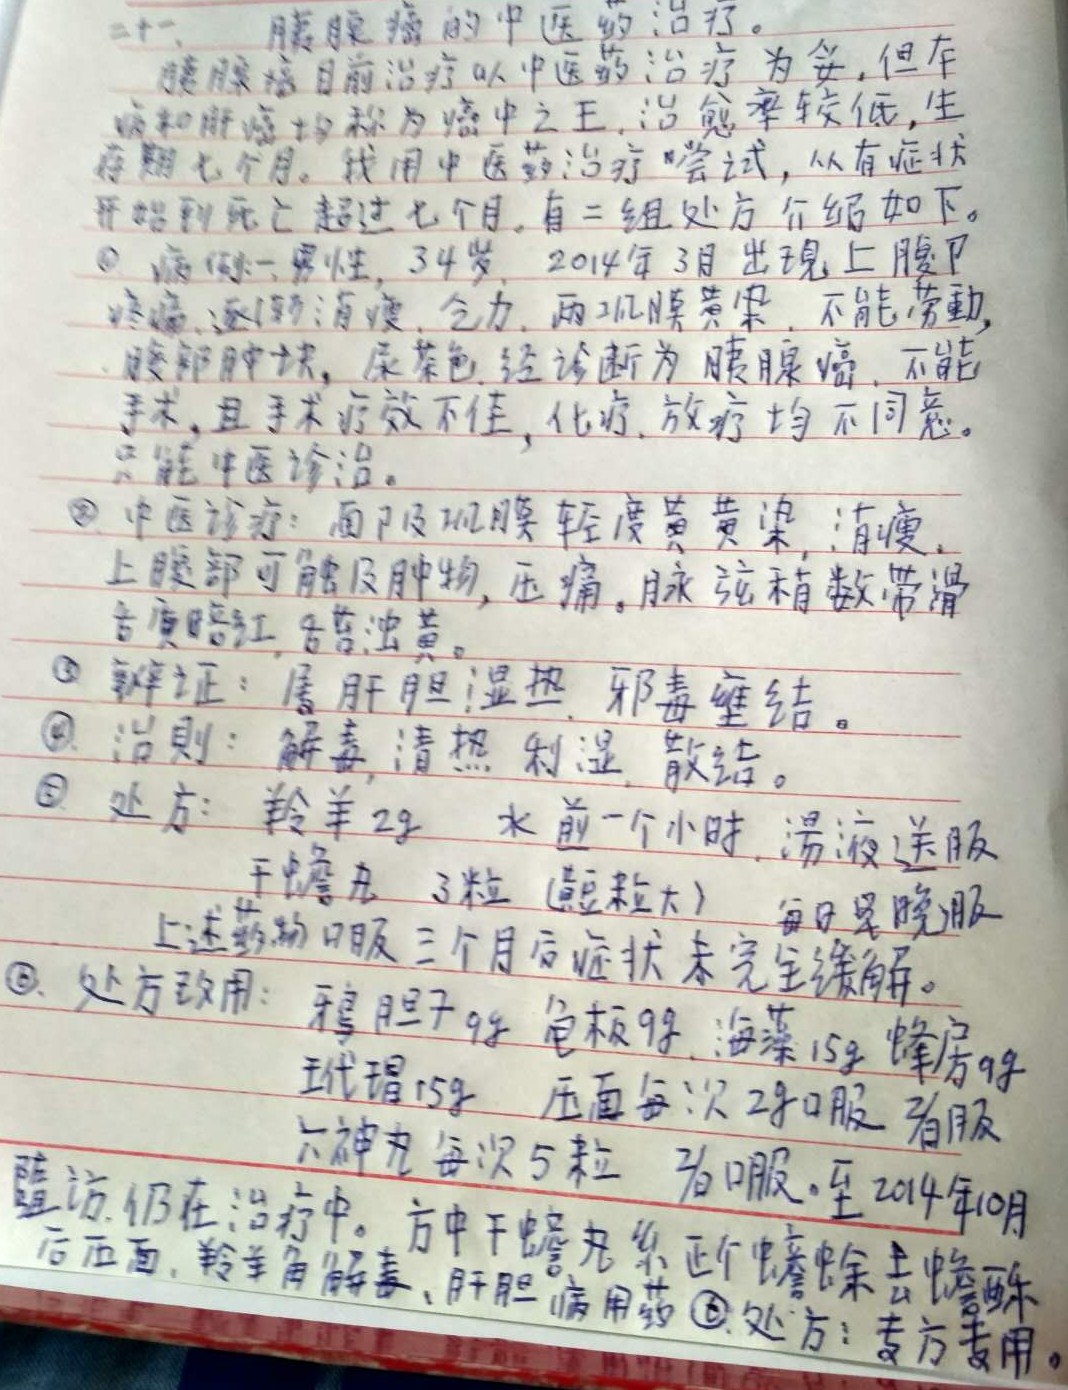 二十一、 胰腺癌的中医药治疗。
胰腺癌目前治疗以中医药治疗为妥,但本
病和肝癌均称为癌中之王,治愈率较低,生
存期七个月。我用中医药治疗嚐试,从有症状
开始到死亡超过七个月。有二组处方介绍如下。
① 病例一、男性,34岁,2014年3月出现上腹卩
疼痛,逐渐消瘦、乏力、两巩膜黄染、不能劳動,
腹部肿块,尿茶色,经诊断为胰腺癌、不能
手术,且手术疗效不佳,化疗、放疗均不同意。
只能中医诊治。
② 中医诊疗:面卩及巩膜轻度黄黄染,消瘦、
上腹部可触及肿物,压痛。脉弦稍数带滑
舌质暗红,舌苔浊黄。
③ 辩证:属肝胆湿热、邪毒壅结。
④ 治則:解毒,清热利湿、散结。
⑤ 处方:羚羊2g 水前一个小时、湯液送服
干蟾丸 3粒(黄豆粒大) 每日早晚服
上述药物口服三个月后症状未完全缓解。
⑥、处方改用:鸦胆子9g 龟板9g、海藻15g 蜂房9g
玳瑁15g 压面每次2g口服 2/日服
六神丸每次5粒 2/日口服。至2014年10月
隨访、仍在治疗中。方中干蟾丸系正个蟾蜍去蟾酥
后压面、羚羊角解毒、肝胆病用药⑥、处方:专方专用。